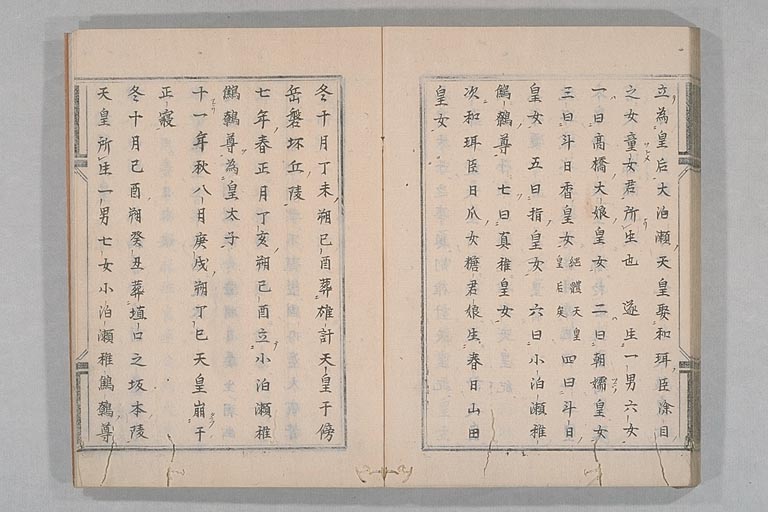 立為皇后大泊瀬天皇娶和珥臣深目
之女童女君所生也　遂生一男六女
一曰高橋大娘皇女　二曰朝嬬皇女
三曰斗日香皇女　四曰斗日
皇女　五曰指皇女　六曰小泊瀬稚
鷦鷯尊　七曰真稚皇女
次和珥臣日爪女糠君娘生春日山田
皇女
冬十月丁未朔己酉葬雄計天皇于傍
岳磐坏丘陵
七年春正月丁亥朔己酉立小泊瀬稚
鷦鷯尊為皇太子
十一年秋八月庚戌朔丁巳天皇崩于
正寝
冬十月己酉朔癸丑葬埴口之坂本陵
天皇所生一男七女小泊瀬稚鷦鷯尊